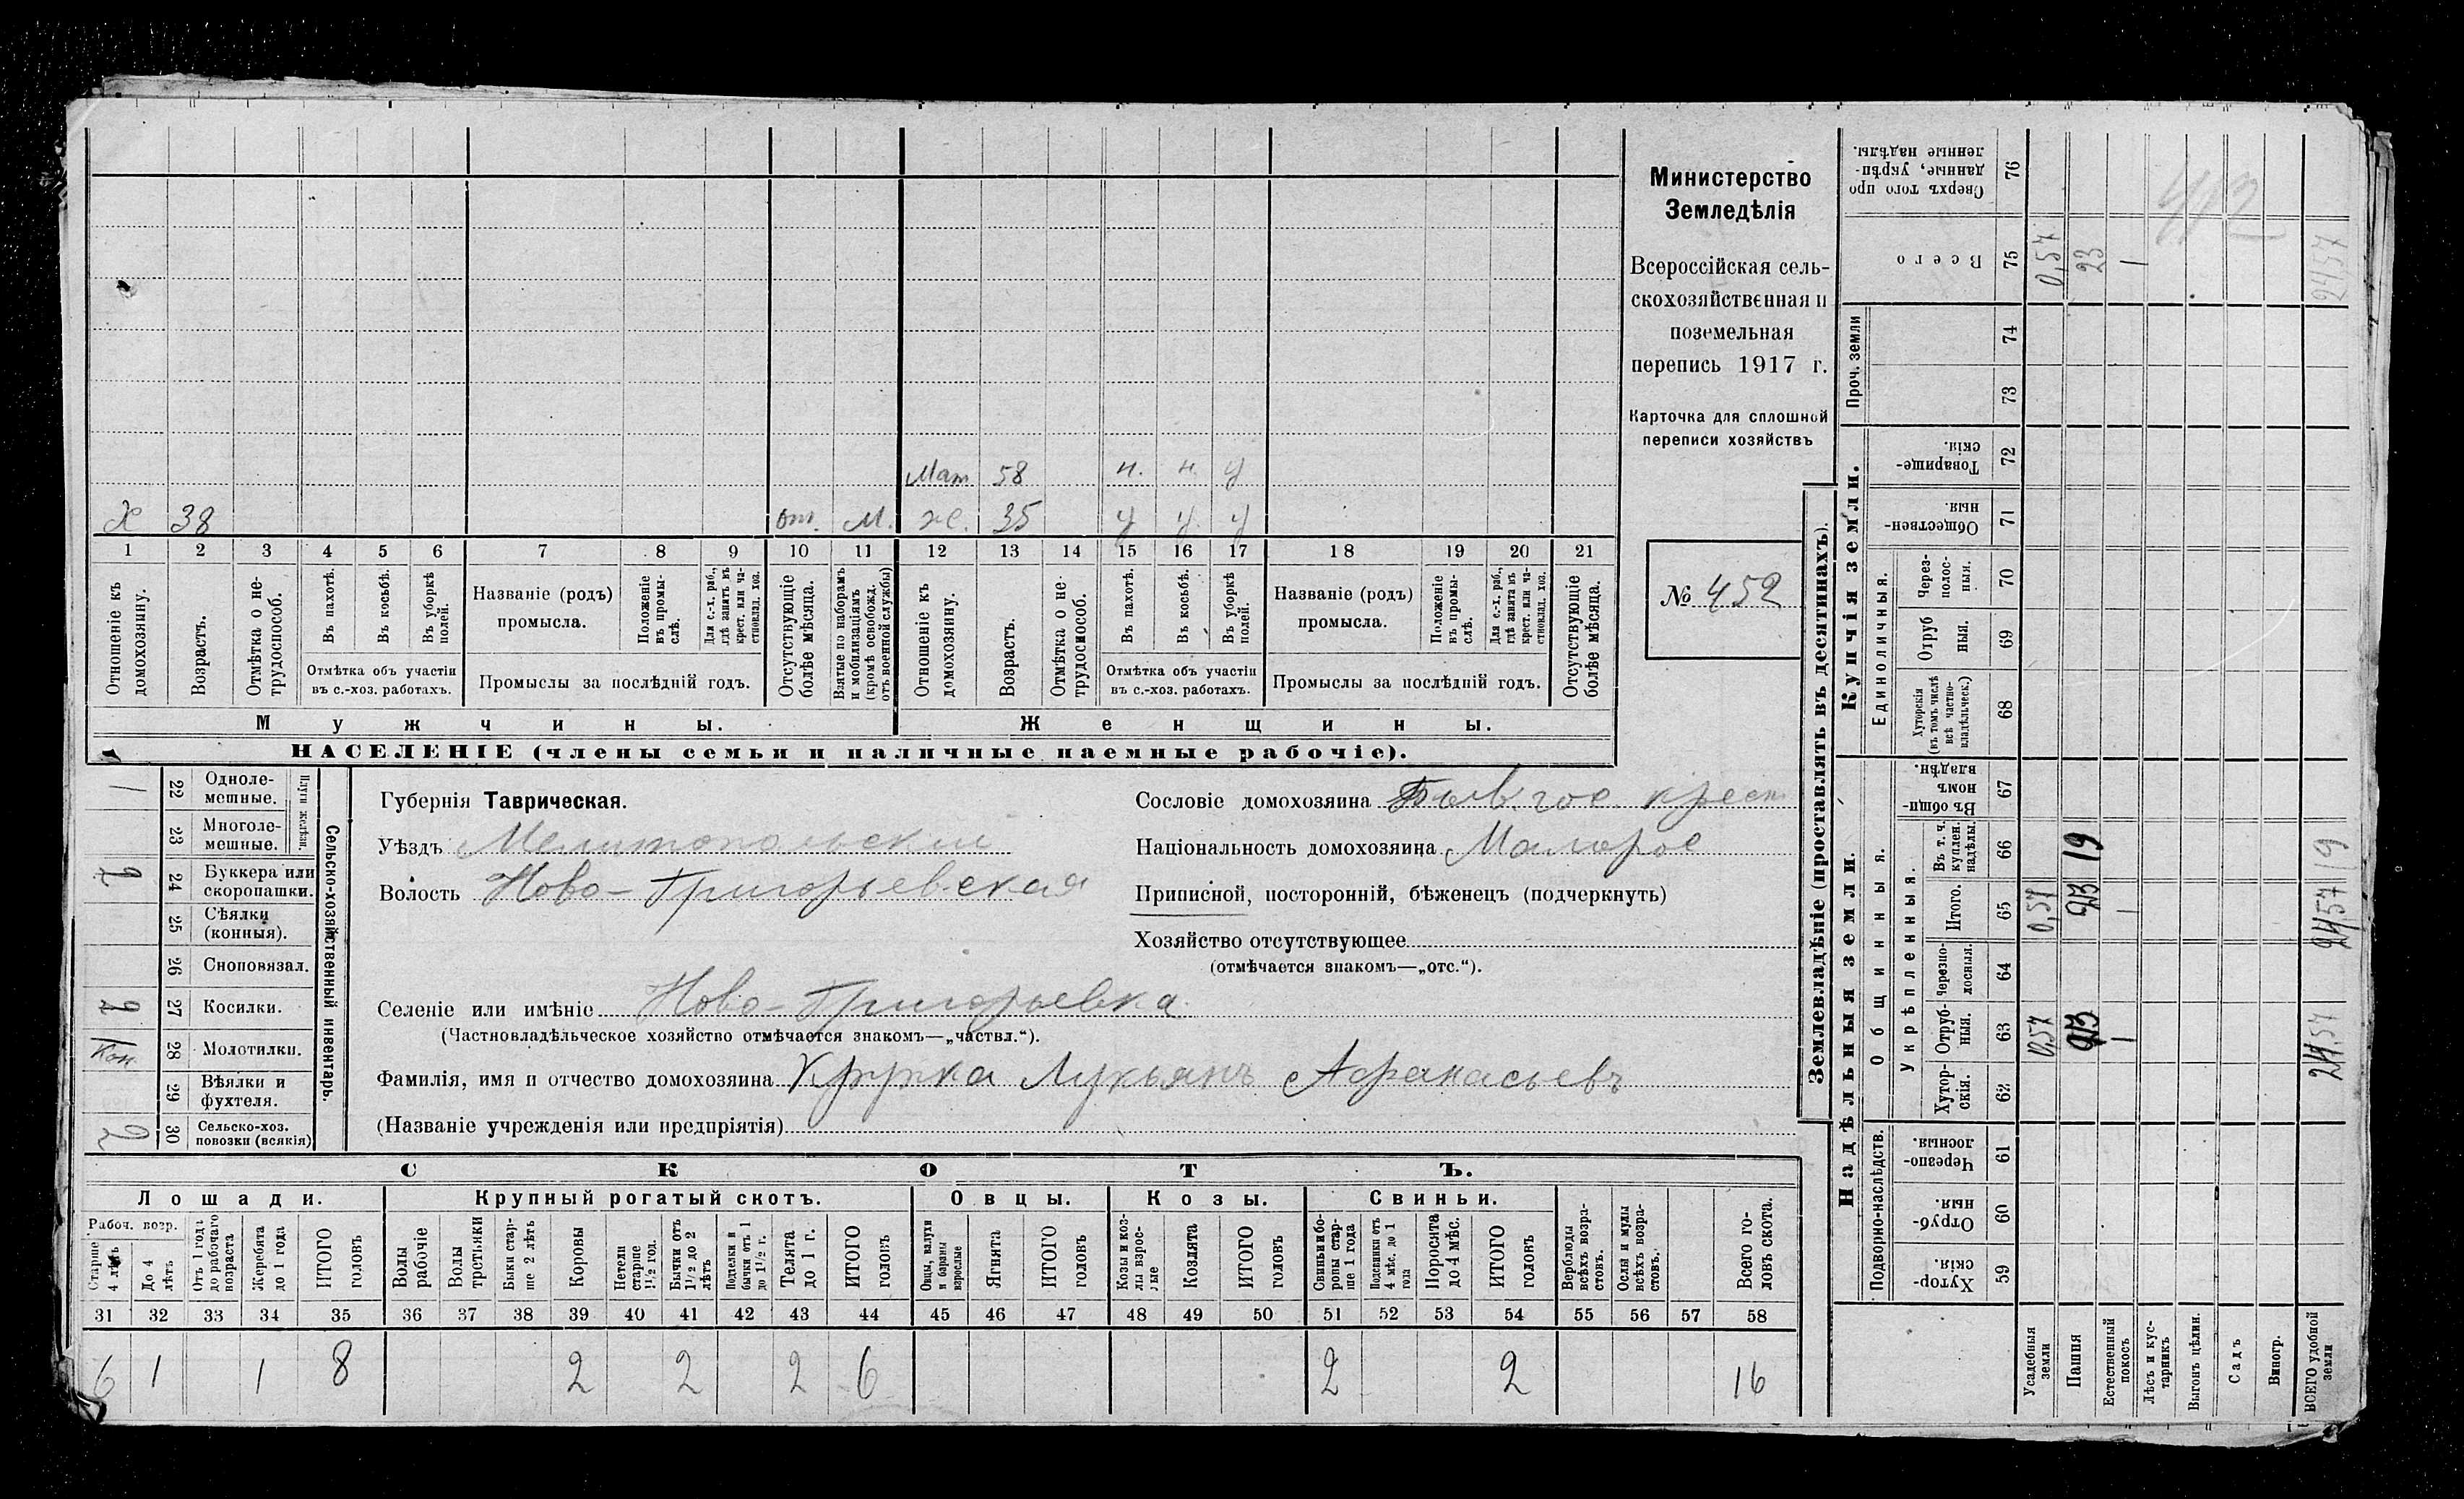 Министерство
Земледѣлія
Всероссійская сель-
скохозяйственная и
поземельная
перепись 1917 г.
Карточка для сплошной
переписи хозяйствъ
№ 452
Мат 58 н. н. у
Х 38 от. М. ж. 35 у у у
1 2 3 4 5 6 7 8 9 10 11 12 13 14 15 16 17 18 19 20 21
Отношеніе къ домохозяину.
Возрастъ.
Отмѣтка о не-трудоспособ.
Въ пахотѣ.
Въ косьбѣ.
Въ уборкѣ полей.
Отмѣтка объ участіи
въ с.-хоз. работахъ.
Названіе (родъ)
промысла.
Положеніе въ промы-слѣ.
Для с.-х. раб., гдѣ занятъ въ крест. или ча-стновлад. хоз.
Промыслы за послѣдній годъ.
Отсутствующіе болѣе мѣсяца.
Взятые по наборамъ и мобилизаціямъ (кромѣ освобожд. отъ военной службы)
Отношеніе къ домохозяину.
Возрастъ.
Отмѣтка о не-трудоспособ.
Въ пахотѣ.
Въ косьбѣ.
Въ уборкѣ полей.
Отмѣтка объ участіи
въ с.-хоз. работахъ.
Названіе (родъ)
промысла.
Положеніе въ промы-слѣ.
Для с.-х. раб., гдѣ занята въ крест. или ча-стновлад. хоз.
Промыслы за послѣдній годъ.
Отсутствующіе болѣе мѣсяца.
Мужчины.
Женщины.
НАСЕЛЕНІЕ (члены семьи и наличные наемные рабочіе).
Сельско-хозяйственный инвентарь.
Плуги желѣзн.
1 22 Одноле-мешные.
23 Многоле-мешные.
2 24 Буккера или скоропашки.
25 Сѣялки (конныя).
26 Сноповязал.
1 27 Косилки.
Кон 28 Молотилки.
29 Вѣялки и фухтеля.
2 30 Сельско-хоз. повозки (всякія)
Губернія Таврическая.
Уѣздъ Мелитопольскій
Волость Ново-Григорьевская
Сословіе домохозяина Быв. гос. крест
Національность домохозяина Малорос
Приписной, посторонній, бѣженецъ (подчеркнуть)
Хозяйство отсутствующее
(отмѣчается знакомъ—„отс.“).
Селеніе или имѣніе Ново-Григорьевка
(Частновладѣльческое хозяйство отмѣчается знакомъ—„частвл.“).
Фамилія, имя и отчество домохозяина Крупка Лукьянъ Афанасьевъ
(Названіе учрежденія или предпріятія)
СКОТЪ.
Лошади. Крупный рогатый скотъ. Овцы. Козы. Свиньи.
Рабоч. возр.
Старше 4 лѣтъ
До 4 лѣтъ
Отъ 1 года до рабочаго возраста
Жеребята до 1 года
ИТОГО головъ
Волы рабочіе
Волы третьяки
Быки стар-ше 2 лѣтъ
Коровы
Нетели старше 1½ год.
Бычки отъ 1½ до 2 лѣтъ
Подтелки и бычки отъ 1 до 1½ г.
Телята до 1 г.
ИТОГО головъ
Овцы, валухи и бараны взрослые
Ягнята
ИТОГО головъ
Козы и коз-лы взрос-лые
Козлята
ИТОГО головъ
Свиньи и бо-ровы стар-ше 1 года
Подсвинки отъ 4 мѣс. до 1 года
Поросята до 4 мѣс.
ИТОГО головъ
Верблюды всѣхъ возра-стовъ.
Ослы и мулы всѣхъ возра-стовъ.
Всего го-ловъ скота.
31 32 33 34 35 36 37 38 39 40 41 42 43 44 45 46 47 48 49 50 51 52 53 54 55 56 57 58
6 1 1 8 2 2 2 6 2 2 16
Землевладѣніе (проставлять въ десятинахъ).
Надѣльныя земли.
Купчія земли.
Проч. земли
Подворно-наслѣдств.
Общинныя.
Укрѣпленныя.
Единоличныя.
Сверхъ того про-данные, укрѣп-ленные надѣлы. 76
Всего 75 0,57 23 1 24,57
74
73
Товарище-скія. 72
Обществен-ныя. 71
Через-полос-ныя. 70
Отруб-ныя. 69
Хуторскія (въ томъ числѣ всѣ частно-владѣльческ.) 68
Въ общин-номъ владѣн. 67
Въ т. ч. куплен. надѣлы. 66 19 19
Итого. 65 0,57 23 1 24,57
Черезпо-лосныя. 64
Отруб-ныя. 63 0,57 23 1 24,57
Хутор-скія. 62
Черезпо-лосныя. 61
Отруб-ныя. 60
Хутор-скія. 59
Усадебныя земли
Пашня
Естественный покосъ
Лѣсъ и кус-тарникъ
Выгонъ цѣлин.
Садъ
Виногр.
ВСЕГО удобной земли